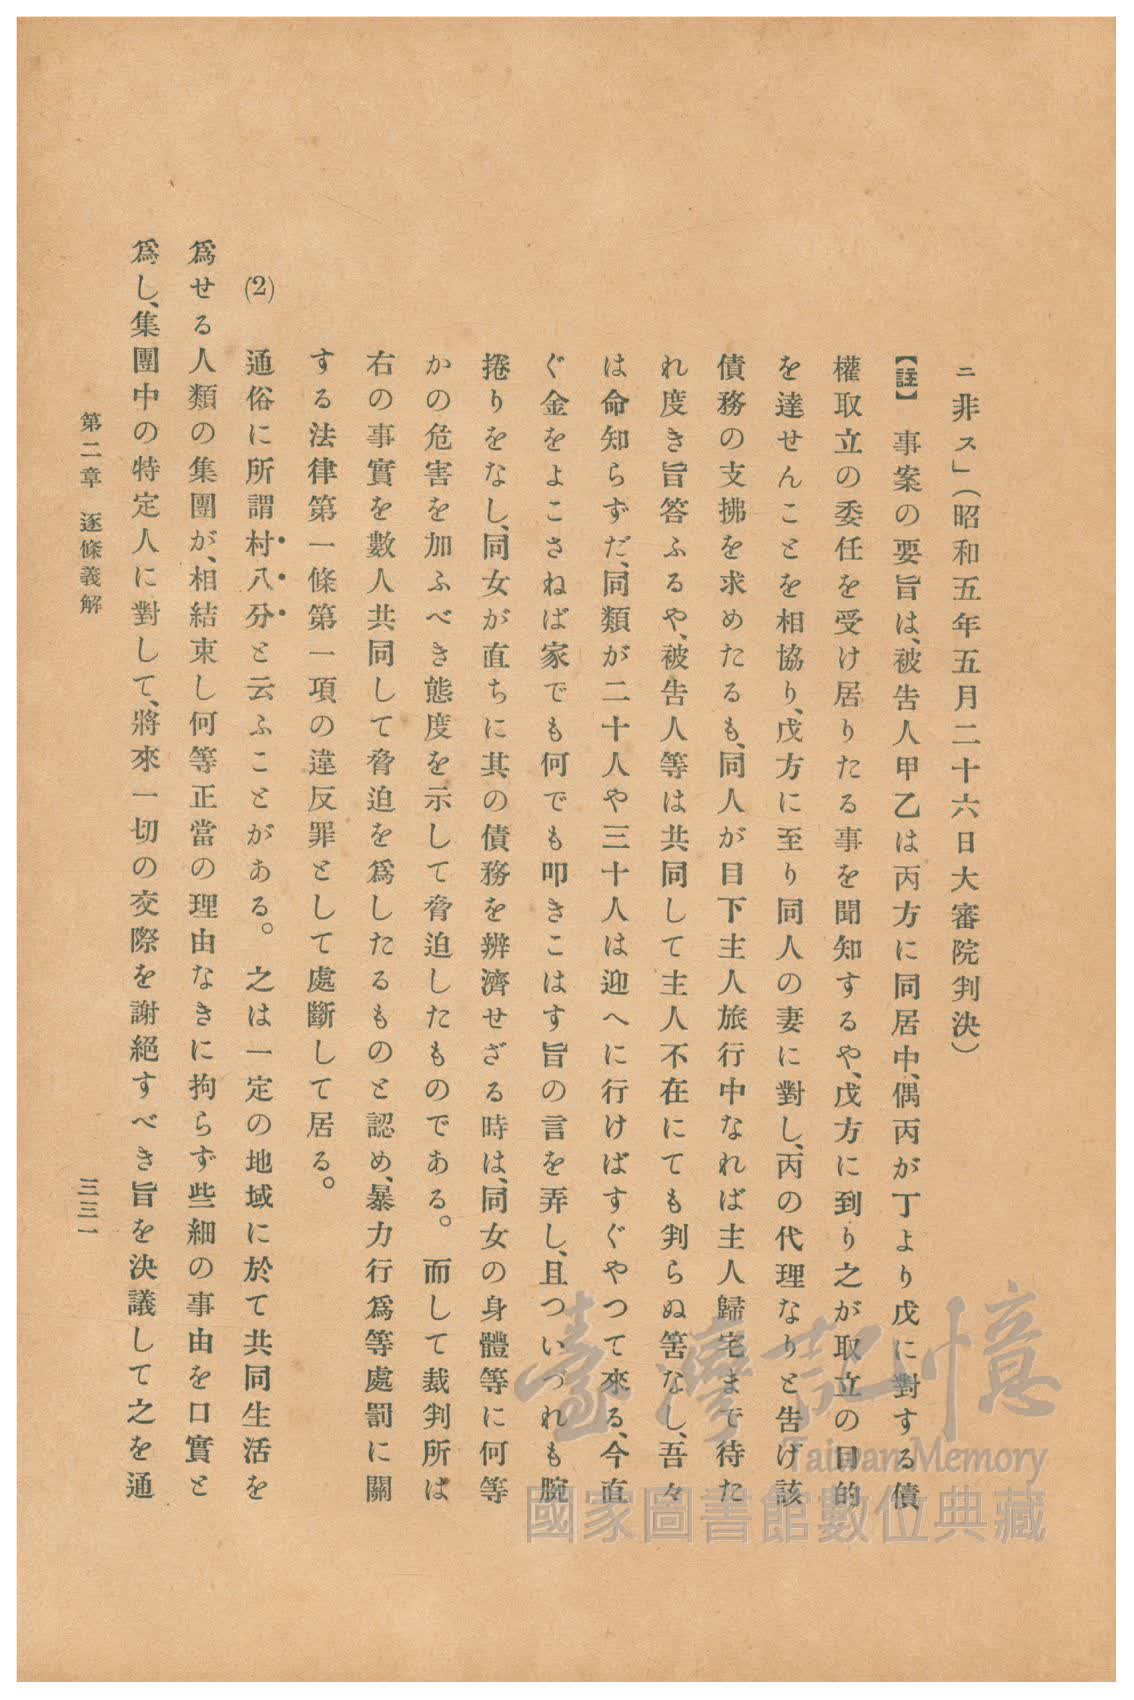 ニ非ス」（昭和五年五月二十六日大審院判決）
【註】　事案の要旨は、被告人甲乙は丙方に同居中、偶丙が丁より戊に對する債
權取立の委任を受け居りたる事を聞知するや、戊方に到り之が取立の目的
を達せんことを相協り、戊方に至り同人の妻に對し、丙の代理なりと告げ該
債務の支拂を求めたるも、同人が目下主人旅行中なれば主人歸宅まで待た
れ度き旨答ふるや、被告人等は共同して主人不在にても判らぬ筈なし、吾々
は命知らずだ、同類が二十人や三十人は迎へに行けばすぐやつて來る、今直
ぐ金をよこさねば家でも何でも叩きこはす旨の言を弄し、且ついづれも腕
捲りをなし、同女が直ちに其の債務を辨濟せざる時は、同女の身體等に何等
かの危害を加ふべき態度を示して脅迫したものである。而して裁判所は
右の事實を數人共同して脅迫を爲したるものと認め、暴力行爲等處罰に關
する法律第一條第一項の違反罪として處斷して居る。
(2)　通俗に所謂村八分と云ふことがある。之は一定の地域に於て共同生活を
爲せる人類の集團が、相結束し何等正當の理由なきに拘らず些細の事由を口實と
爲し、集團中の特定人に對して、將來一切の交際を謝絕すべき旨を決議して之を通
第二章　逐條義解
三三一
臺灣記憶
Taiwan Memory
國家圖書館數位典藏